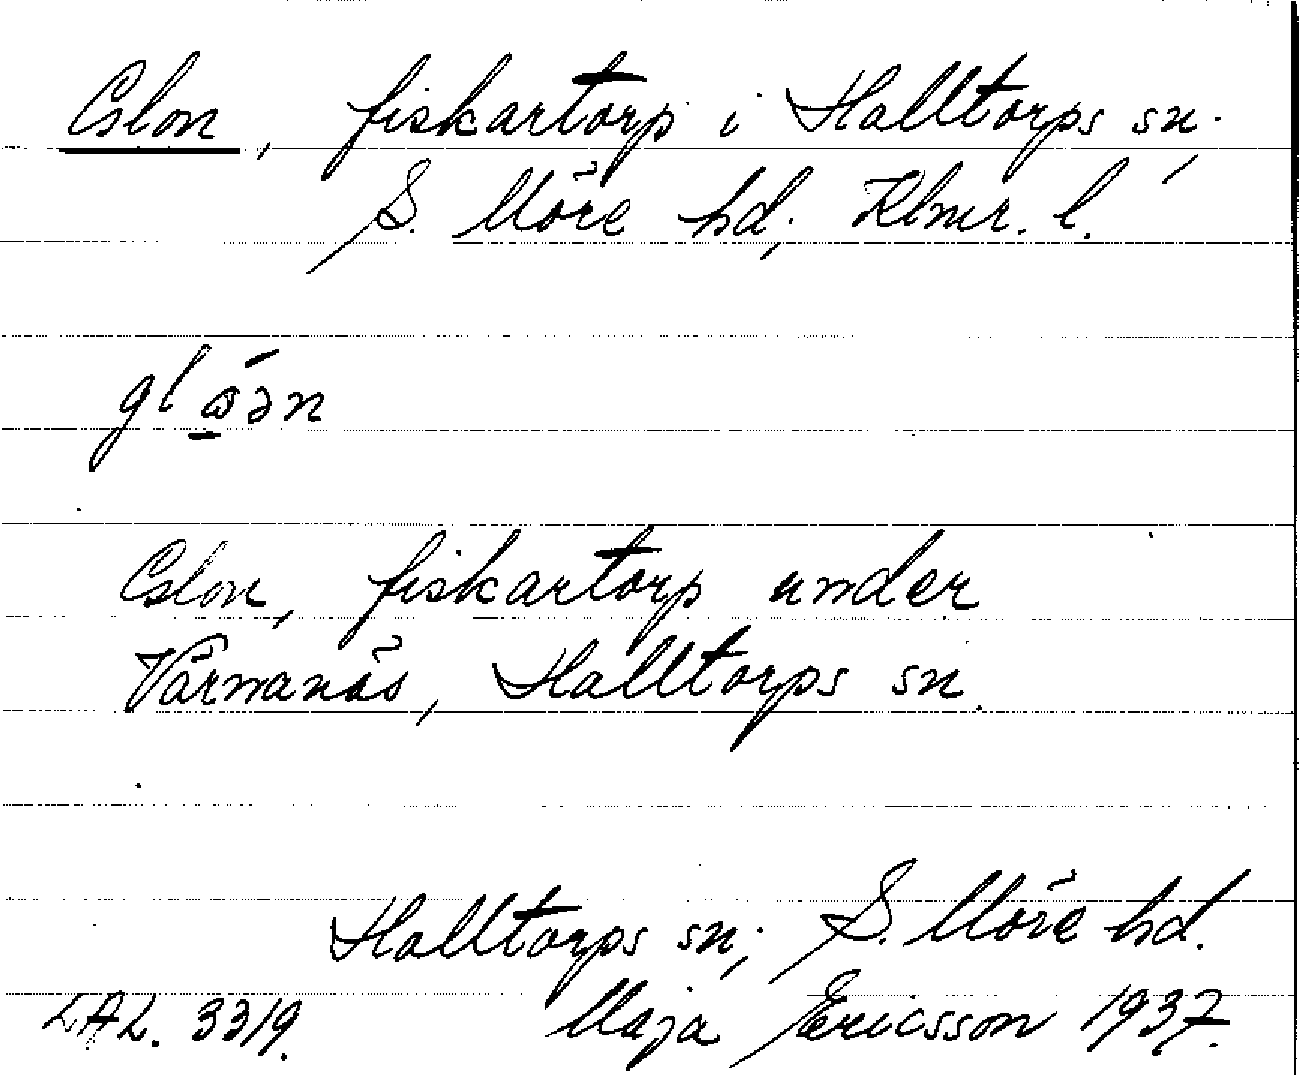 Glon, fiskartorp i Halltorps sn,
S. Möre hd, Klmr. l.
Glon, fiskartorp under
Värnanäs, Halltorps sn.
Halltorps sn, S. Möre hd.
LAL. 3319. Maja Ericsson 1937.